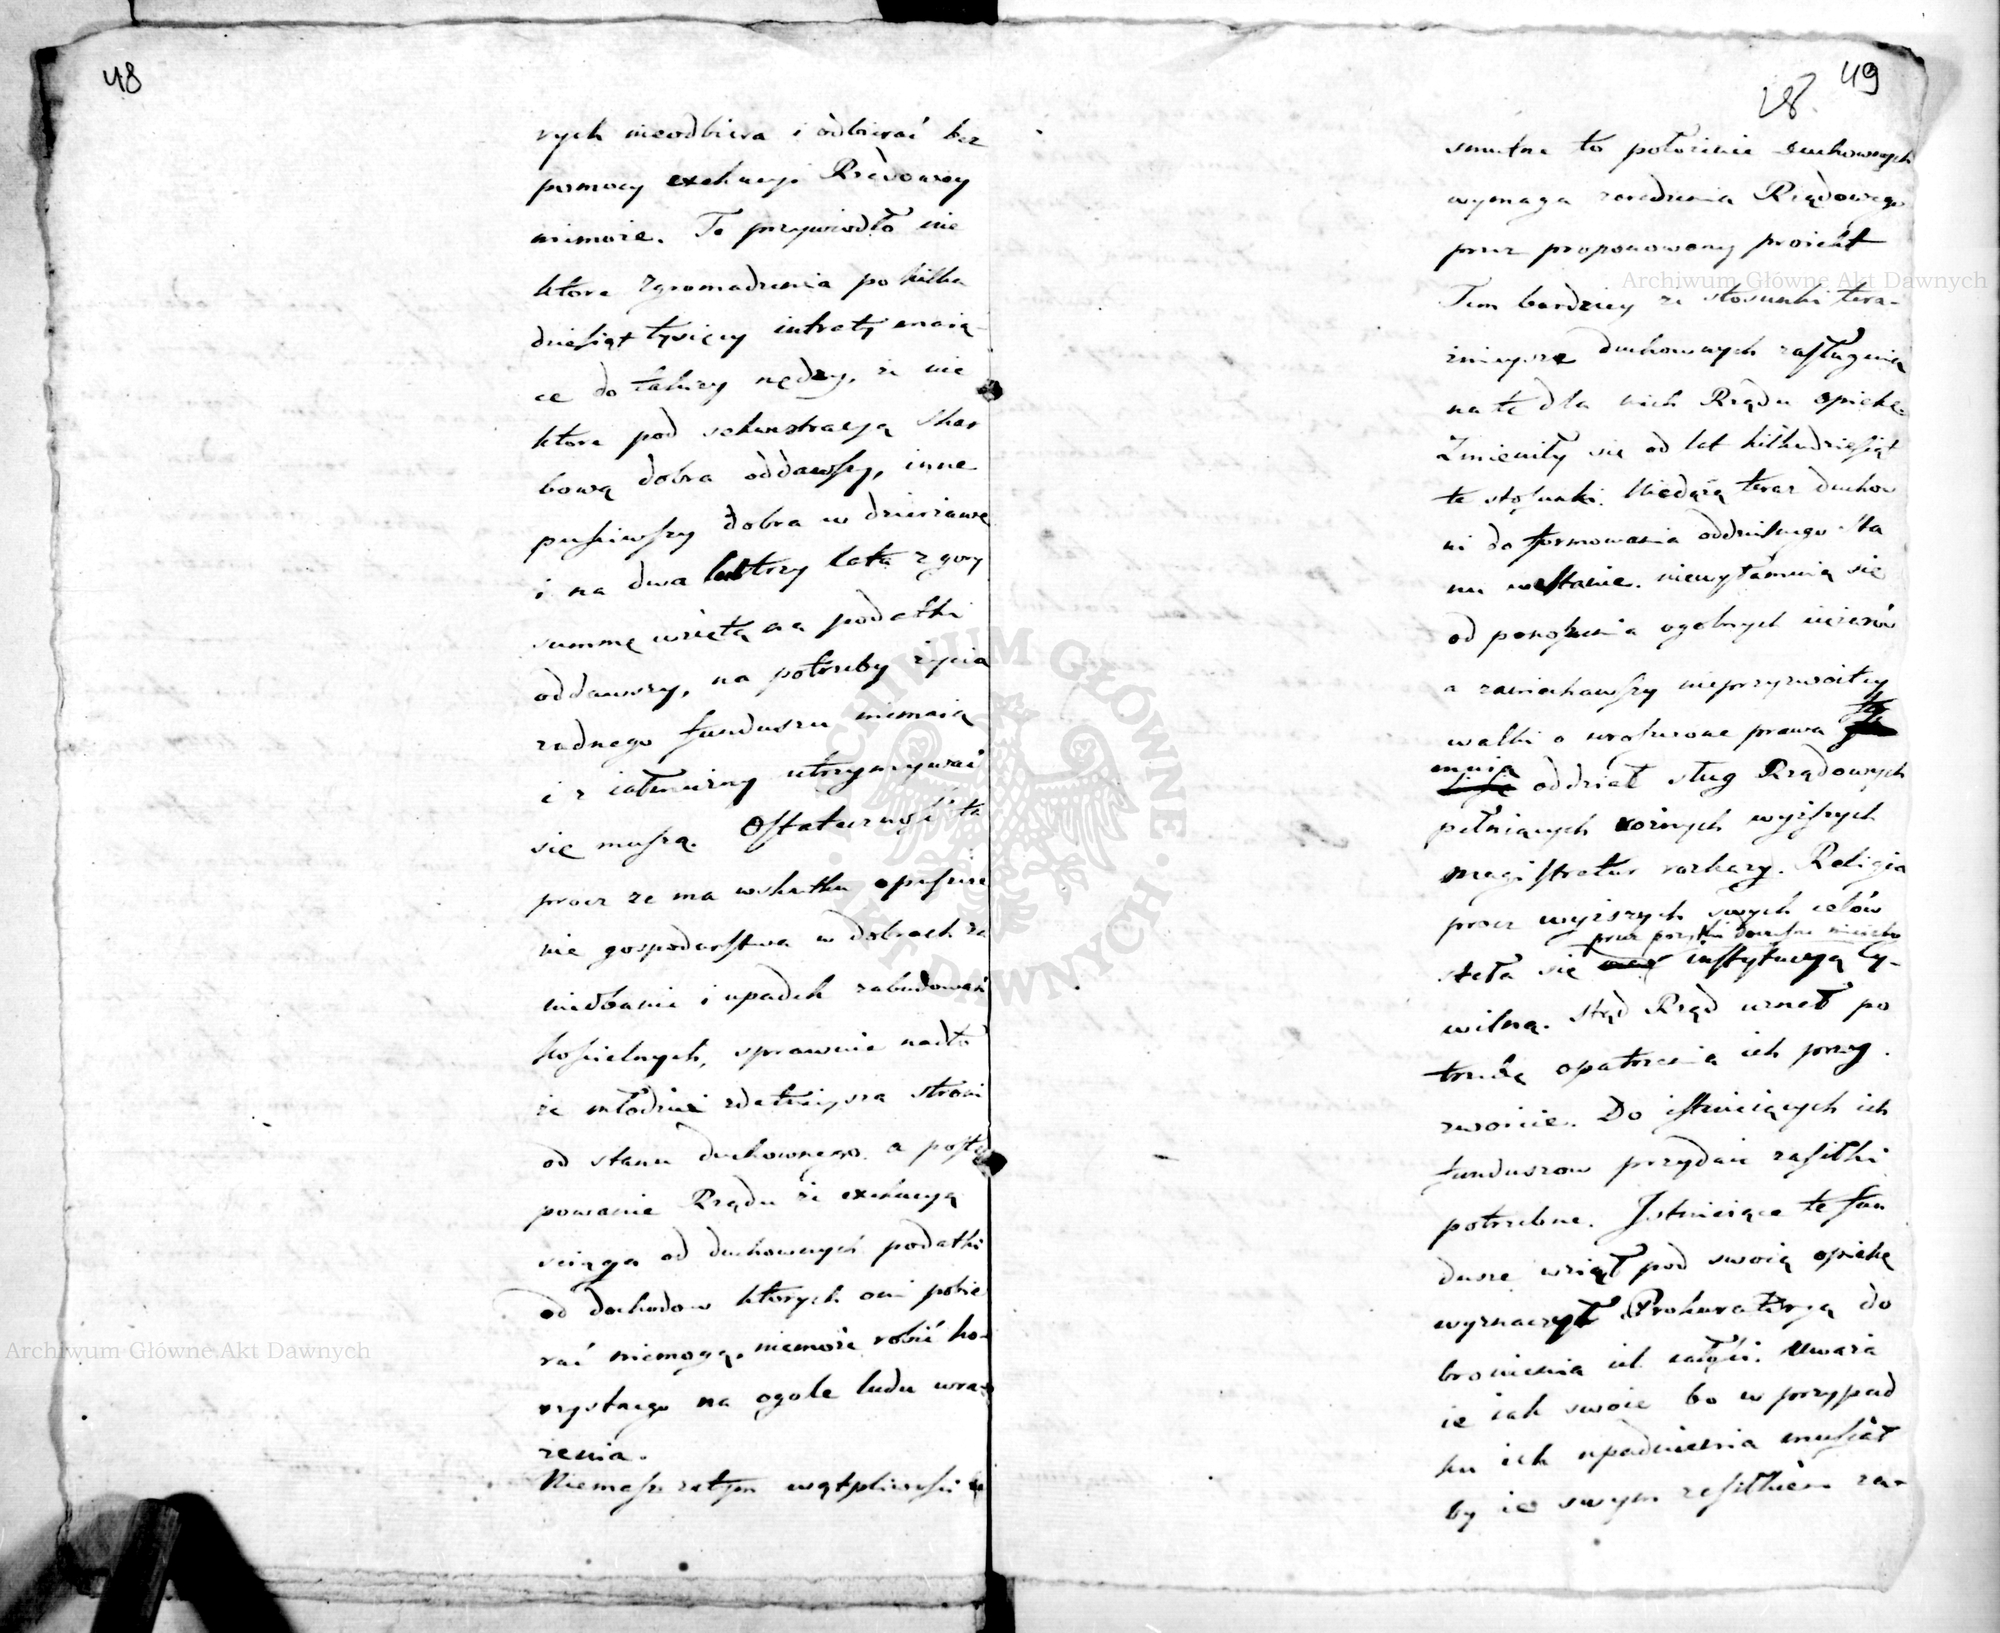 48
rych nieodbiera i odbierać bez
pomocy exekucyi Rządowey
niemoże. To przywiodło nie
które zgromadzenia po kilka
dziesiąt tysięcy intraty maią-
ce do takiey nędzy, że nie
które pod sekwestracyą Skar
bową dobra oddawszy, inne
puściwszy dobra w dzierżawę
i na dwa lub trzy lata z gory
summę wziętą na podatki
oddawszy, na potrzeby życia
żadnego funduszu niemaią
i z iałmużny utrzymywać
się muszą. Ostateczność ta
procz że ma w skutku opuszcze
nie gospodarstwa w dobrach za
niedbanie i upadek zabudowań
kościelnych, sprawuie nadto
że młodzież zdatnieysza stroni
od stanu duchownego. a postę
powanie Rządu że exekucyą
ściąga od duchownych podatki
od dochodow których oni pobie
rać niemogą, niemoże robić ko-
rzystnego na ogole ludu wra-
żenia.
Niemasz zatym wątpliwości że
49
28.
smutne to położenie duchownych
wymaga zaradzenia Rządowego
przez proponowany proiekt
Tem bardziey że stosunki tera-
źnieysze duchownych zasługuią
na tę dla nich Rządu opiekę.
Zmieniły się od lat kilkudziesiąt
te stosunki. Niedążą teraz duchow
ni do formowania oddzielnego sta
nu w stanie. niewyłamuią się
od ponoszenia ogolnych ciężarów
a zaniechawszy nieprzyzwoitey
walki o uroszczone prawa
muią oddział sług Rządowych
pełniących rożnych wyższych
magistratur rozkazy. Religia
procz wyższych swych celów
stała się instytucyą cy-
wilną. stąd Rząd uznał po
trzebę opatrzenia ich przy
zwoicie. Do istnieiących ich
funduszow przydaie zasiłki
potrzebne. Istnieiące te fun
dusze wziął pod swoią opiekę
wyznaczył Prokuratoryą do
bronienia ich całości. Uważa
ie iak swoie bo w przypad
ku ich upadnienia musiał
by ie swym zasiłkiem za-
Archiwum Główne Akt Dawnych
Archiwum Główne Akt Dawnych
ARCHIWUM GŁÓWNE · AKT DAWNYCH ·